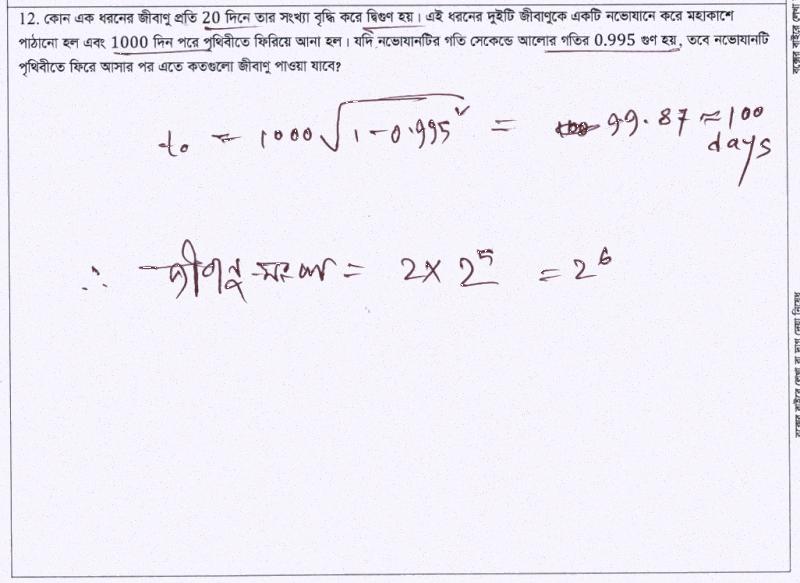 12. কোন এক ধরনের জীবাণু প্রতি 20 দিনে তার সংখ্যা বৃদ্ধি করে দ্বিগুণ হয়। এই ধরনের দুইটি জীবাণুকে একটি নভোযানে করে মহাকাশে
পাঠানো হল এবং 1000 দিন পরে পৃথিবীতে ফিরিয়ে আনা হল। যদি নভোযানটির গতি সেকেন্ডে আলোর গতির 0.995 গুণ হয়, তবে নভোযানটি
পৃথিবীতে ফিরে আসার পর এতে কতগুলো জীবাণু পাওয়া যাবে?
t₀ = 1000 √(1-0.995²) = 99.87 ≈ 100
days
∴ জীবাণু সংখ্যা = 2 × 2⁵ = 2⁶